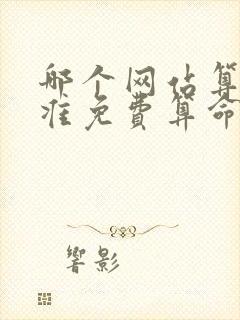 哪个网站算
准免费算命
响影